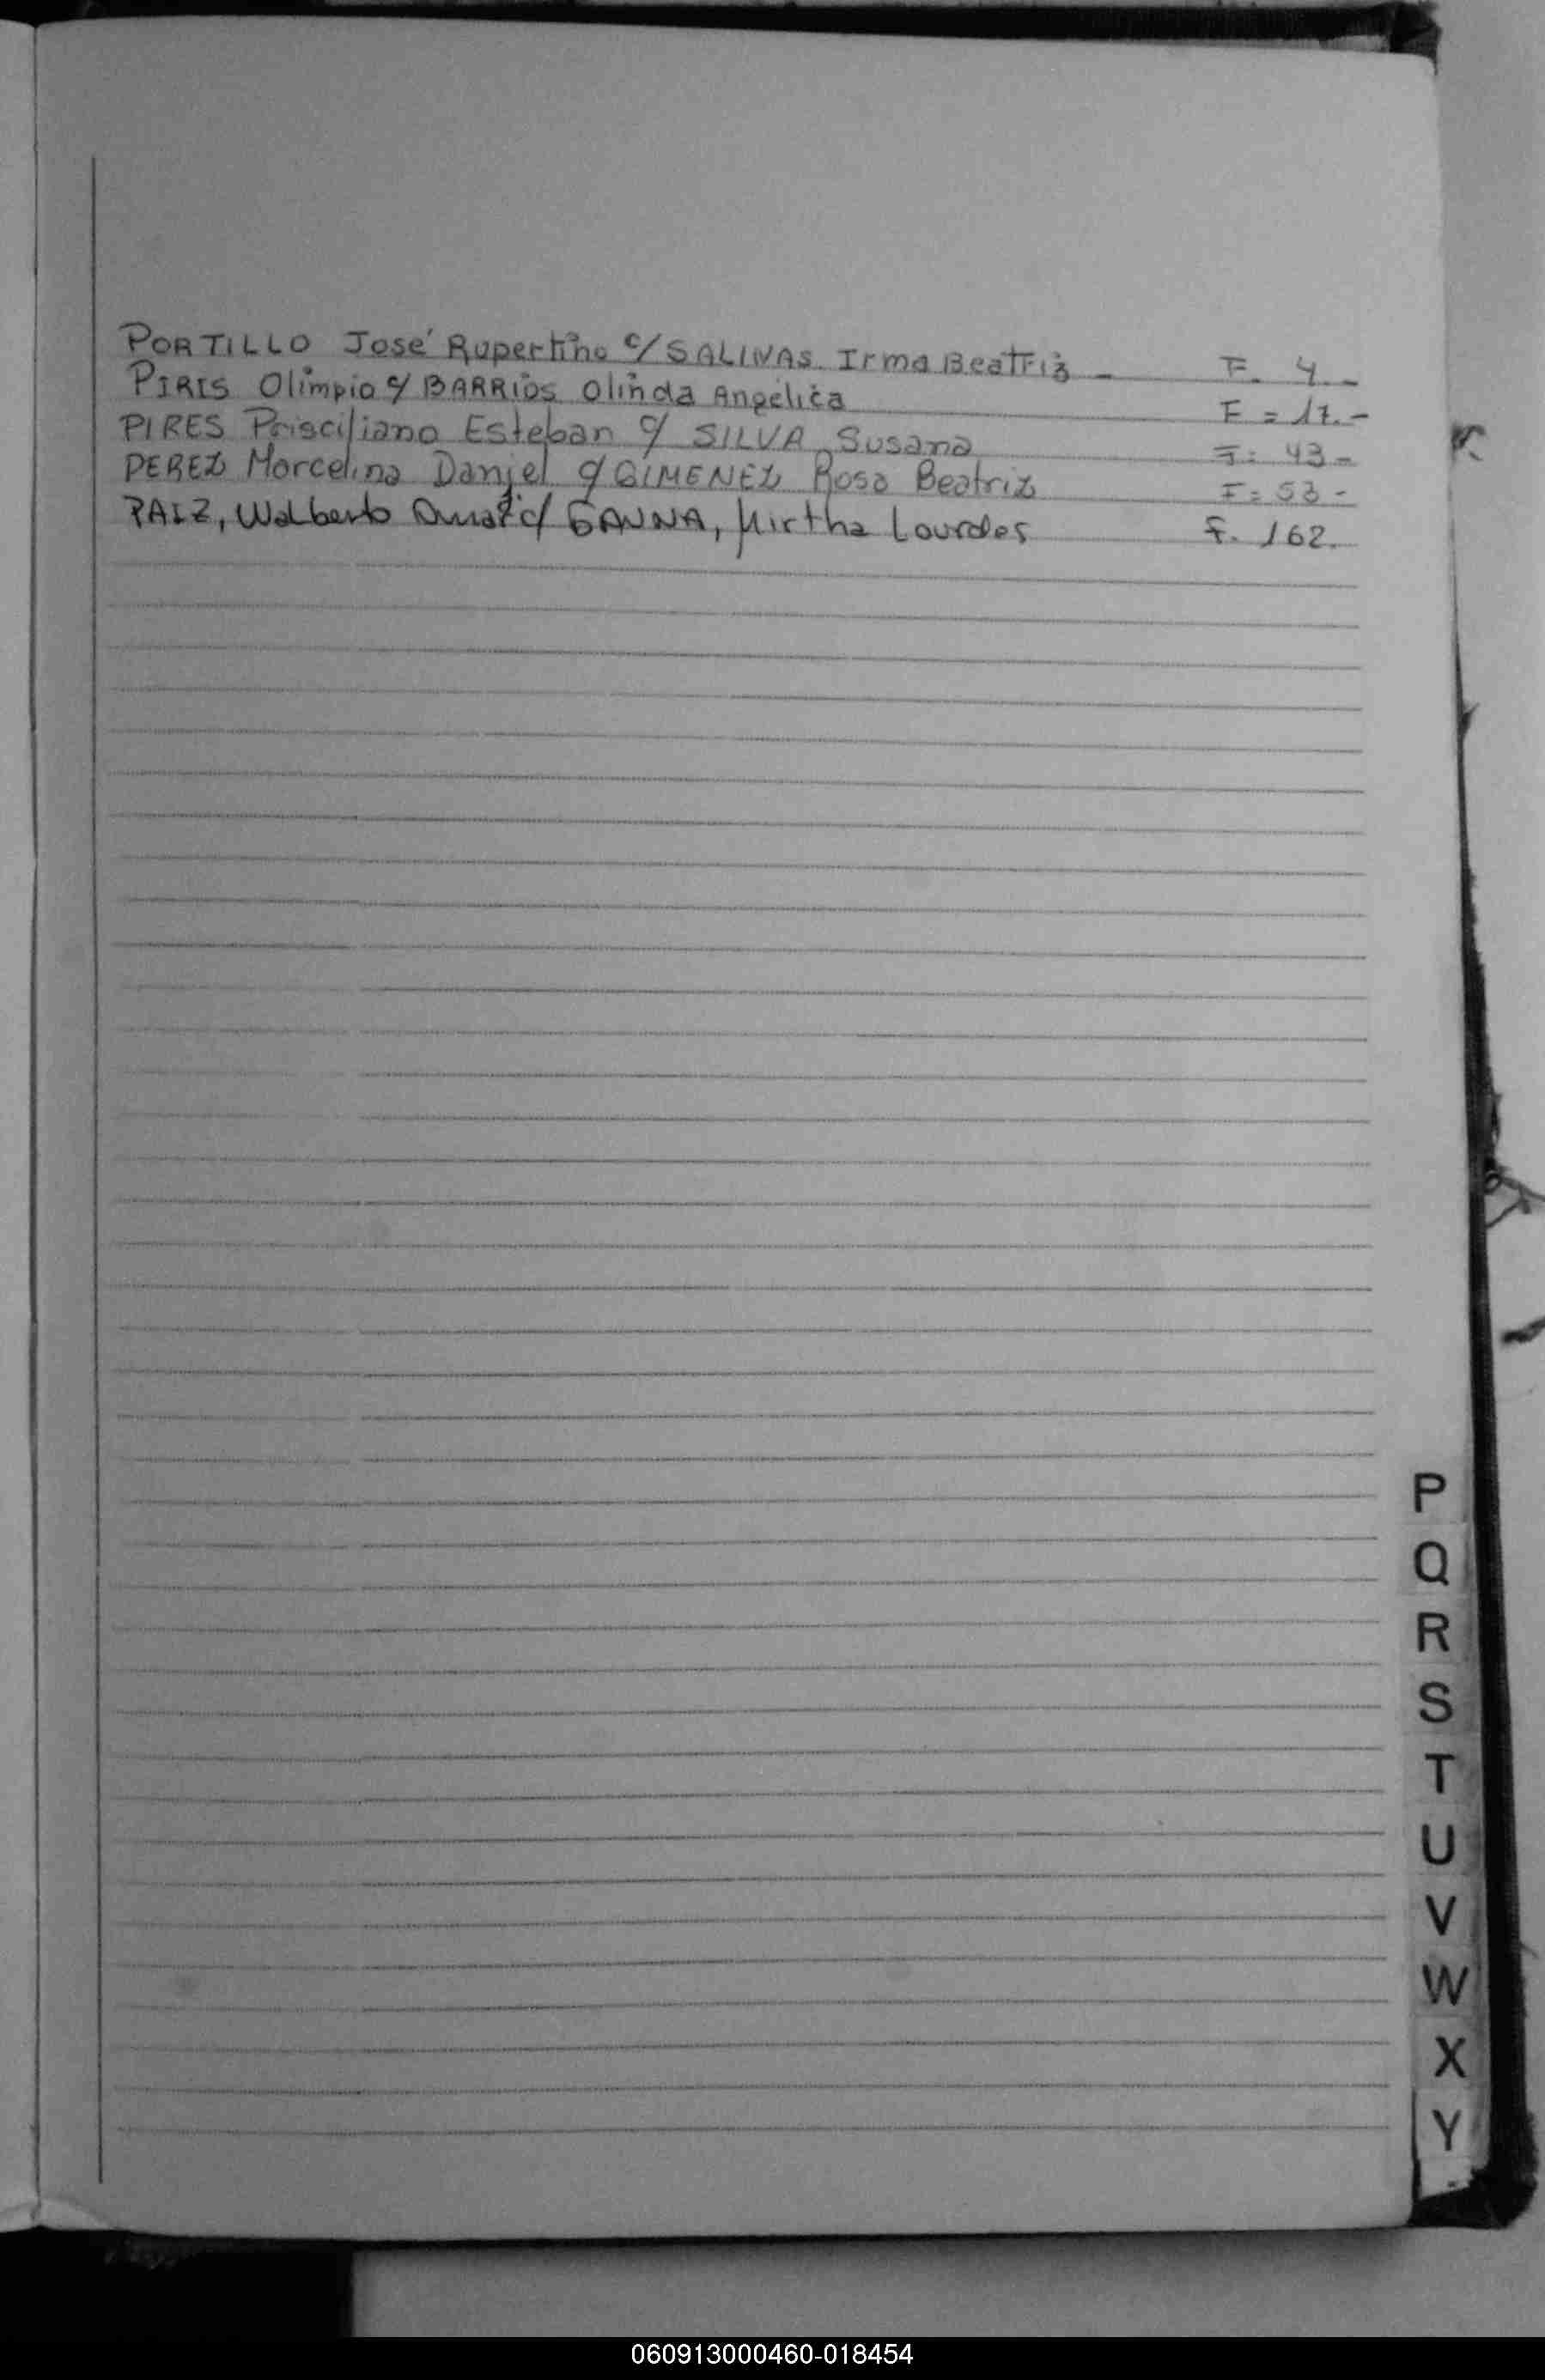 PORTILLO José Rupertino c/ SALINAS Irma Beatriz - F. 4.-
PIRIS Olimpio c/ BARRIOS Olinda Angélica F = 17.-
PIRES Prisciliano Esteban c/ SILVA Susana F= 43-
PEREZ Marcelino Daniel c/ GIMENEZ Rosa Beatriz F= 53-
PAIZ, Walberto c/ GAUNA, Mirtha Lourdes F. 162.
P
Q
R
S
T
U
V
W
X
Y
060913000460-018454